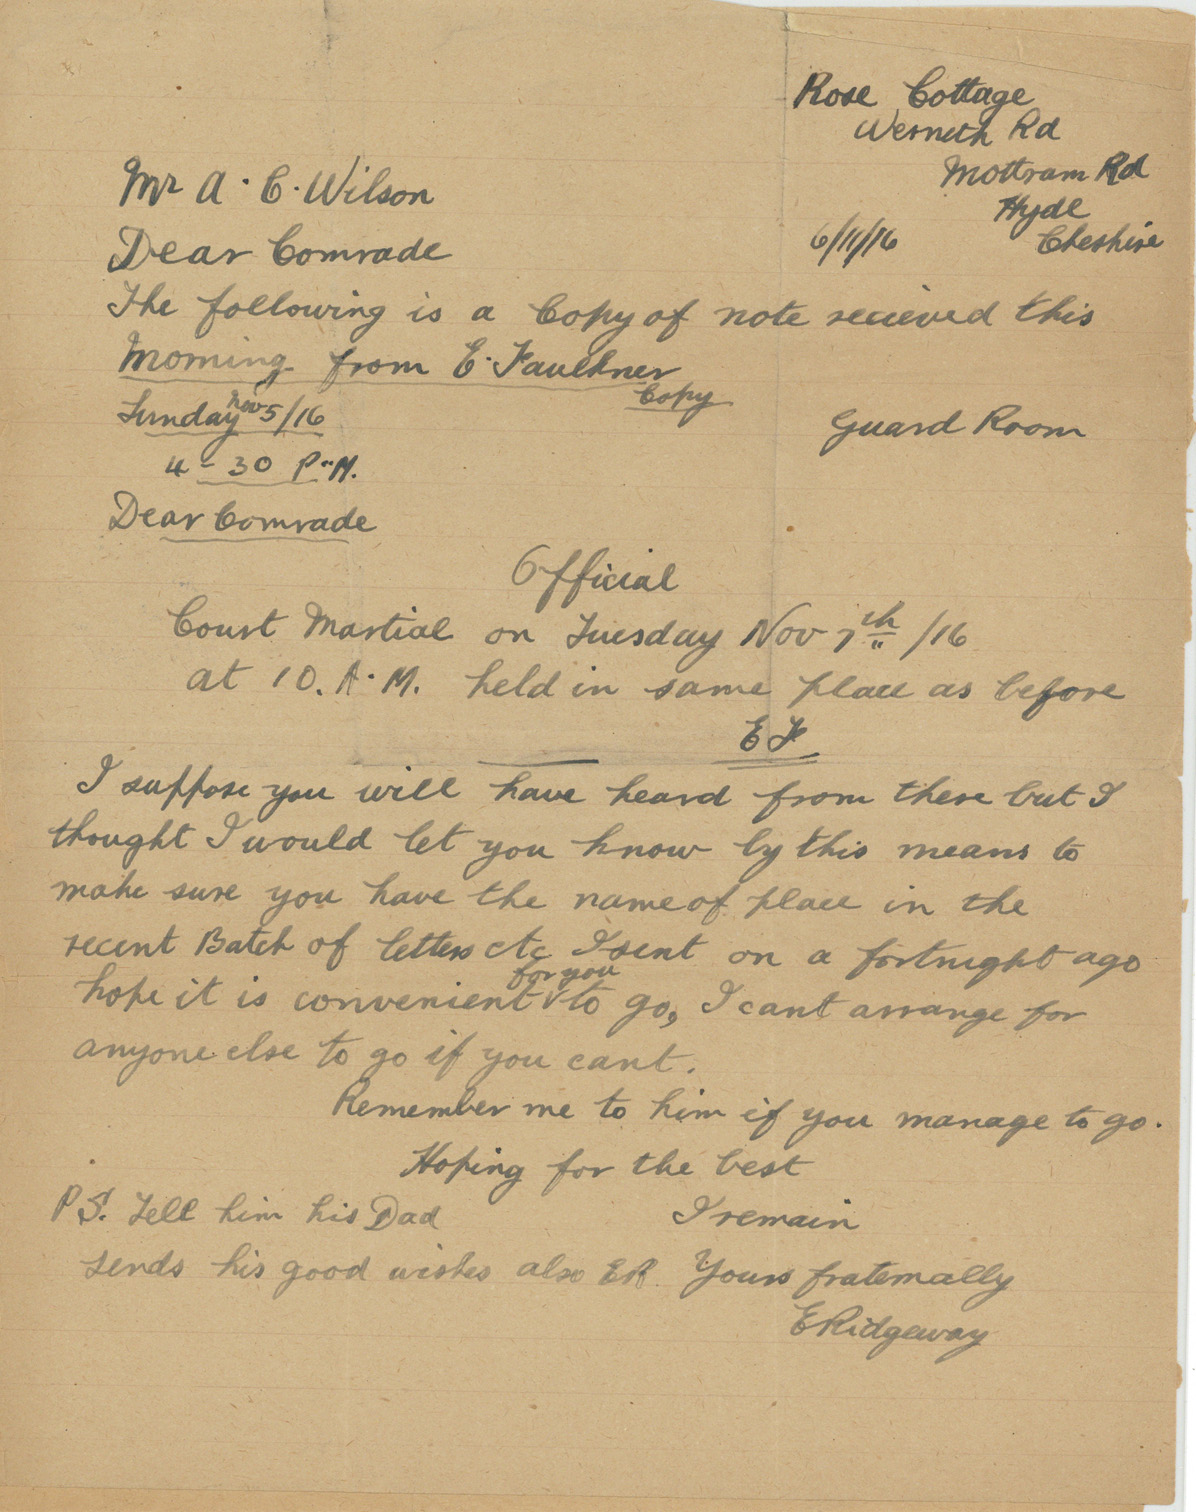 Rose Cottage
Werneth Rd
Mottram Rd
Hyde
Cheshire
6/11/16
Mr A. C. Wilson
Dear Comrade
The following is a Copy of note recieved this
Morning from E. Faulkner
Copy
Sunday Nov 5/16
Guard Room
4-30 P.M.
Dear Comrade
Official
Court Martial on Tuesday Nov 7th /16
at 10. A.M. held in same place as before
E F
I suppose you will have heard from there but I
thought I would let you know by this means to
make sure you have the name of place in the
recent Batch of letters etc I sent on a fortnight ago
hope it is convenient for you to go, I cant arrange for
anyone else to go if you cant.
Remember me to him if you manage to go.
Hoping for the best
I remain
Yours fraternally
E Ridgeway
P S. Tell him his Dad
sends his good wishes also ER.